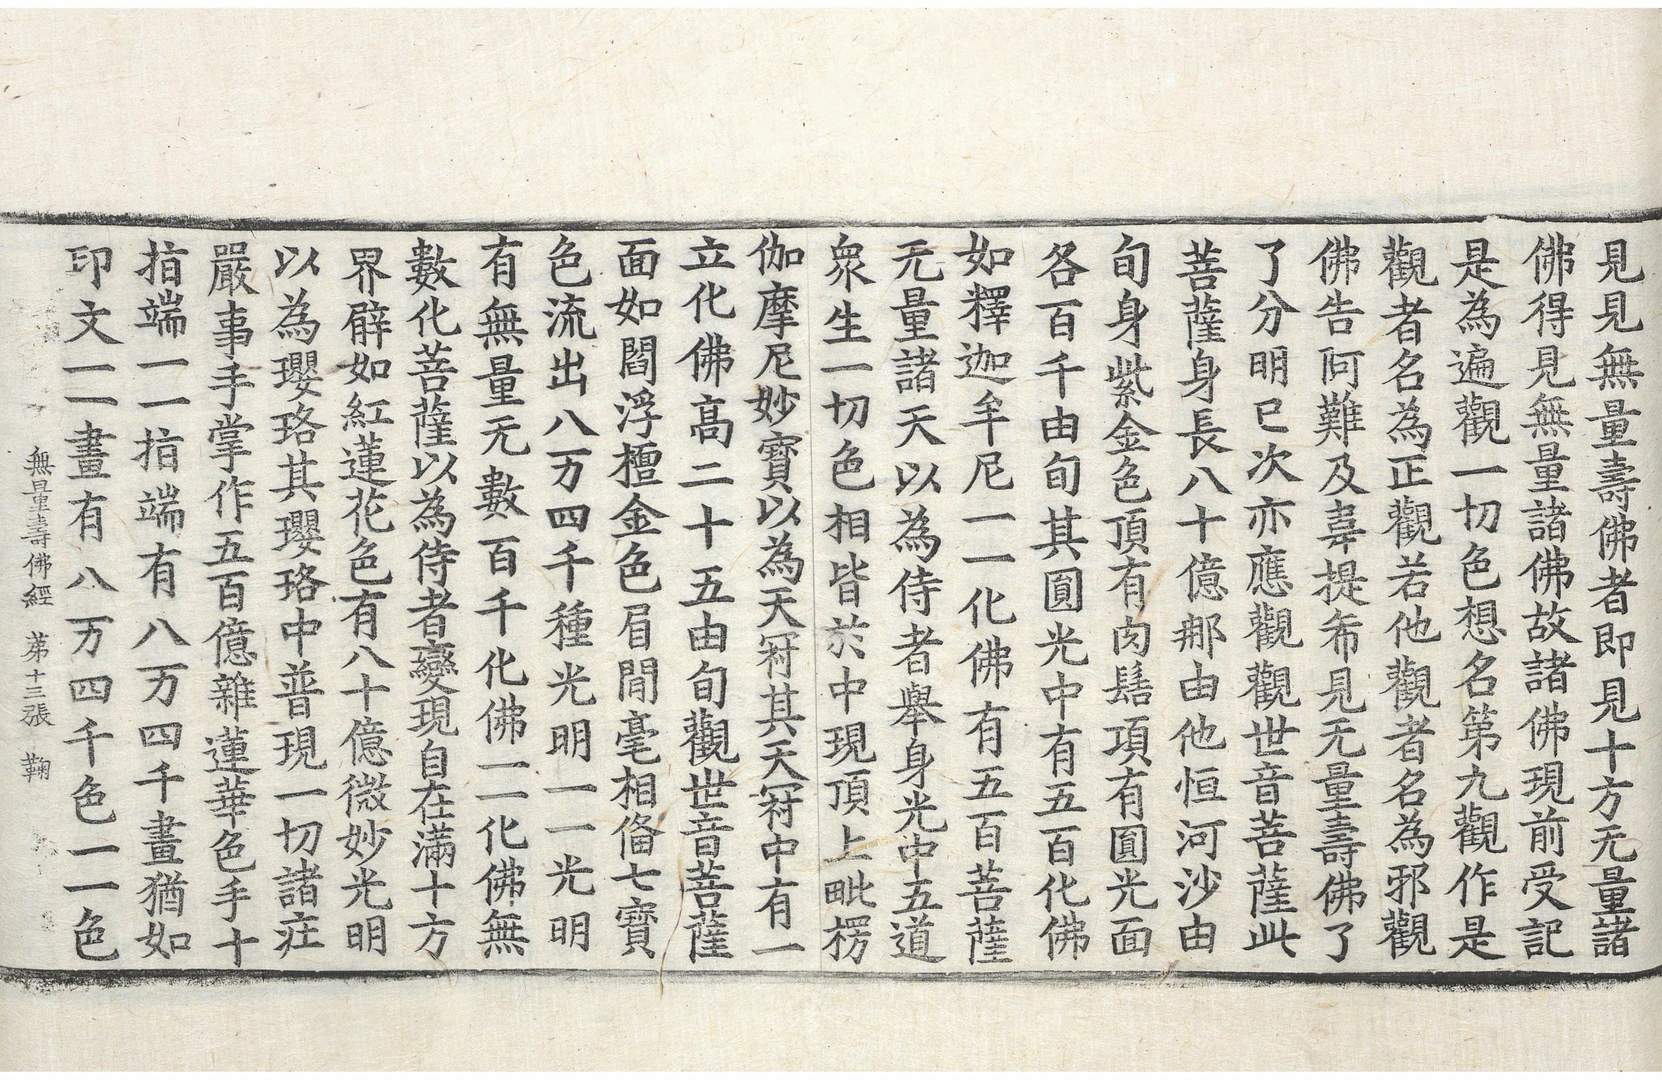 見見無量壽佛者即見十方无量諸
佛得見無量諸佛故諸佛現前受記
是為遍觀一切色想名第九觀作是
觀者名為正觀若他觀者名為邪觀
佛告阿難及韋提希見无量壽佛了
了分明已次亦應觀觀世音菩薩此
菩薩身長八十億那由他恒河沙由
旬身紫金色頂有肉髻項有圓光面
各百千由旬其圓光中有五百化佛
如釋迦牟尼一一化佛有五百菩薩
无量諸天以為侍者舉身光中五道
衆生一切色相皆於中現頂上毗楞
伽摩尼妙寶以為天冠其天冠中有一
立化佛高二十五由旬觀世音菩薩
面如閻浮檀金色眉間毫相俻七寶
色流出八万四千種光明一一光明
有無量无數百千化佛一一化佛無
數化菩薩以為侍者變現自在滿十方
界辟如紅蓮花色有八十億微妙光明
以為瓔珞其瓔珞中普現一切諸庄
嚴事手掌作五百億雜蓮華色手十
指端一一指端有八万四千畫猶如
印文一一畫有八万四千色一一色
無量壽佛經 苐十三張 鞠